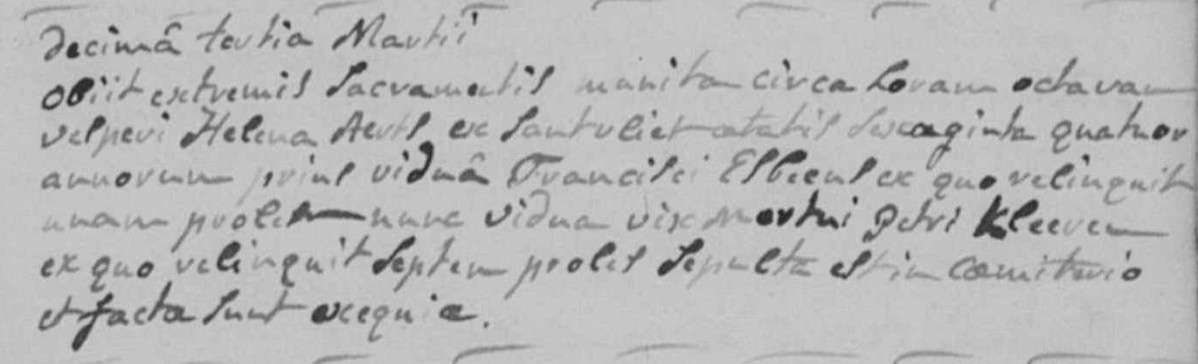 decimâ tertia Martii
obiit extremis Sacramentis munita circa horam octavam
vesperi Helena Aerts ex Santvliet ætatis sexaginta quatuor
annorum prius viduâ Francisci Elbeens ex quo relinquit
unam prolem nunc vidua vix mortui petri Kleeren
ex quo relinquit septem proles sepulta est in cæmiterio
et facta sunt exequiæ.